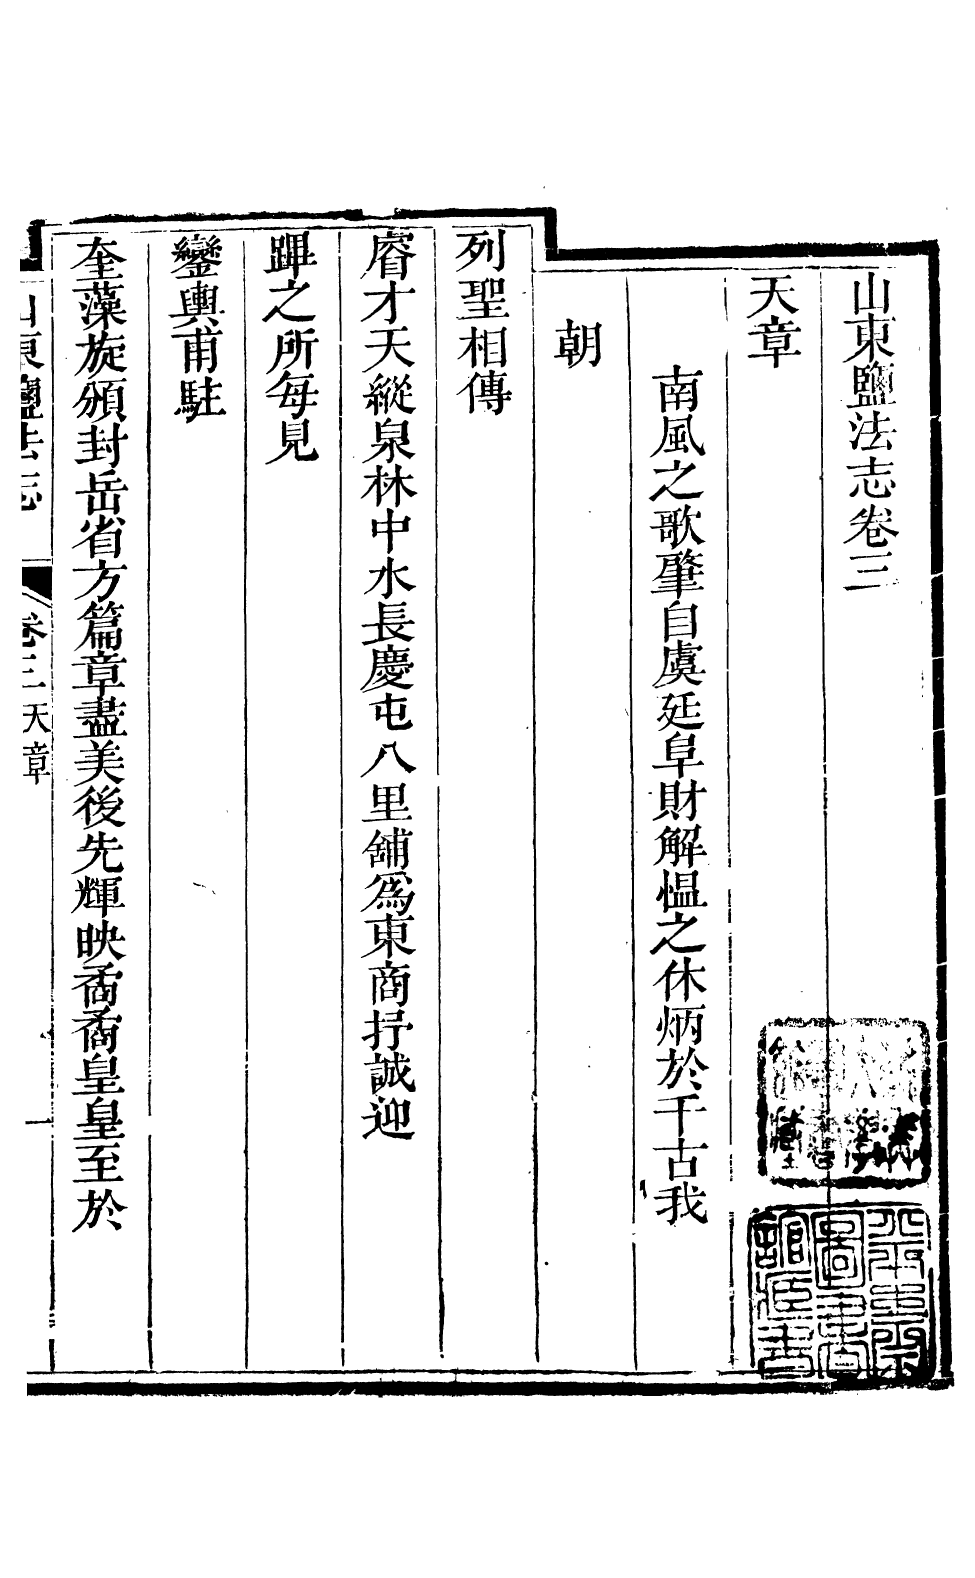 山東鹽法志卷三
天章
南風之歌肇自虞廷阜財解慍之休炳於千古我
朝
列聖相傳
睿才天縱泉林中水長慶屯八里舖爲東商抒誠迎
蹕之所每見
鑾輿甫駐
奎藻旋頒封岳省方篇章盡美後先輝映矞矞皇皇至於
山東鹽法志 卷三 天章 一